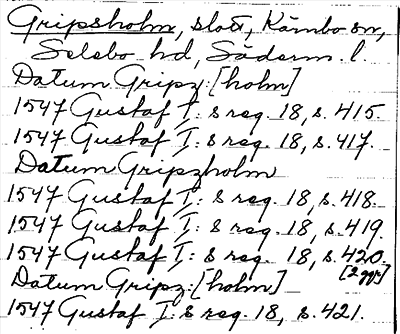 Gripsholm, slott, Kärnbo sn,
Selebo hd, Söderm. l.
Datum Gripz:[holm]
1547 Gustaf I:s reg. 18, s. 415.
1547 Gustaf I:s reg. 18, s. 417.
Datum Gripzholm
1547 Gustaf I:s reg. 18, s. 418.
1547 Gustaf I:s reg. 18, s. 419.
1547 Gustaf I:s reg. 18, s. 420.
[2 ggr]
Datum Gripz:[holm]
1547 Gustaf I:s reg. 18, s. 421.